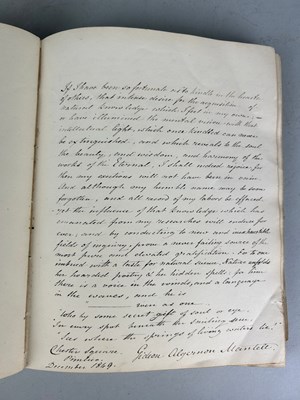 If I have been so fortunate as to kindle in the minds
of others, that intense desire for the acquisition of
natural knowledge which I feel in my own; —
or have illumined the mental vision with that
intellectual light, which once kindled can never
be extinguished, and which reveals to the soul
the beauty, and wisdom, and harmony of the
works of the Eternal, I shall indeed rejoice, for
then my exertions will not have been in vain.
And although my humble name may be soon
forgotten, and all record of my labors be effaced,
yet the influence of that knowledge which has
emanated from my researches will endure for
ever, and by conducting to new and inexhaustible
fields of inquiry, prove a never failing source of the
most pure and elevated gratification. For to one
imbued with a taste for natural science, Nature unfolds
her hoarded poetry & her hidden spells; for him
there is a voice in the winds, and a language
in the waves, and he is
even as one
"Who by some secret gift of soul or eye
In every spot beneath the smiling sun
Sees where the springs of living waters lie."
Chester Square Gideon Algernon Mantell.
Pimlico.
December 1849.